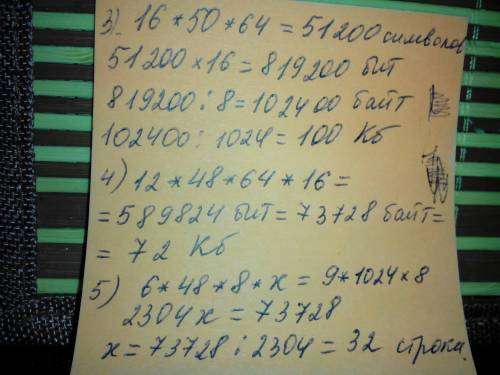 3) 16 * 50 * 64 = 51200 символов
51200 × 16 = 819200 бит
819200 : 8 = 102400 байт
102400 : 1024 = 100 Кб
4) 12 * 48 * 64 * 16 =
= 589824 бит = 73728 байт =
= 72 Кб
5) 6 * 48 * 8 * x = 9 * 1024 * 8
2304 x = 73728
x = 73728 : 2304 = 32 строки.